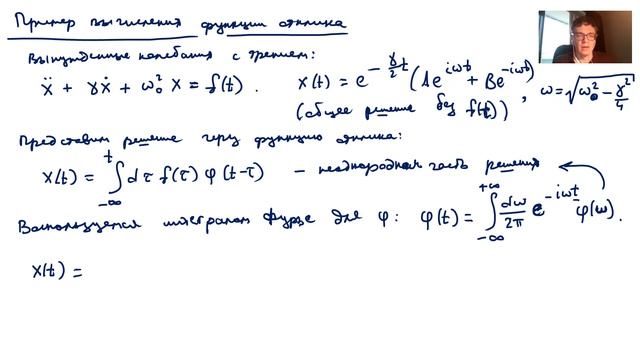 Пример вычисления функции отклика
Вынужденные колебания с трением:
ẍ + γẋ + ω₀² x = f(t). x(t) = e^{-γ/2 t} (A e^{iωt} + B e^{-iωt}), ω = √(ω₀² - γ²/4)
(общее решение без f(t))
Представим решение через функцию отклика:
x(t) = ∫_{-∞}^{t} dτ f(τ) φ(t-τ) – неоднородная часть решения
Воспользуемся интегралом Фурье для φ: φ(t) = ∫_{-∞}^{+∞} dω/2π e^{-iωt} φ(ω).
x(t) =